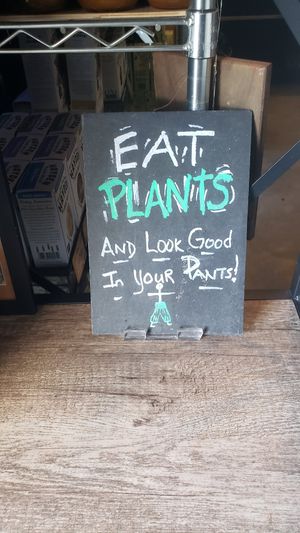 EAT
PLANTS
AND LOOK GOOD
IN YOUR PANTS!